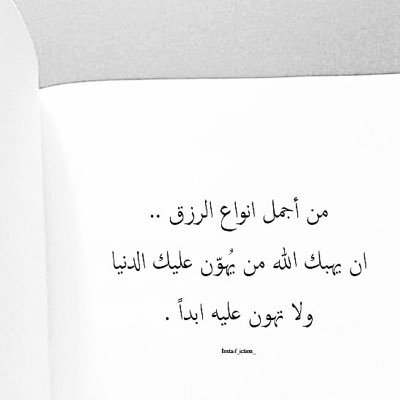 من أجمل انواع الرزق ..
ان يهبك الله من يُهوّن عليك الدنيا
ولا تهون عليه ابداً .